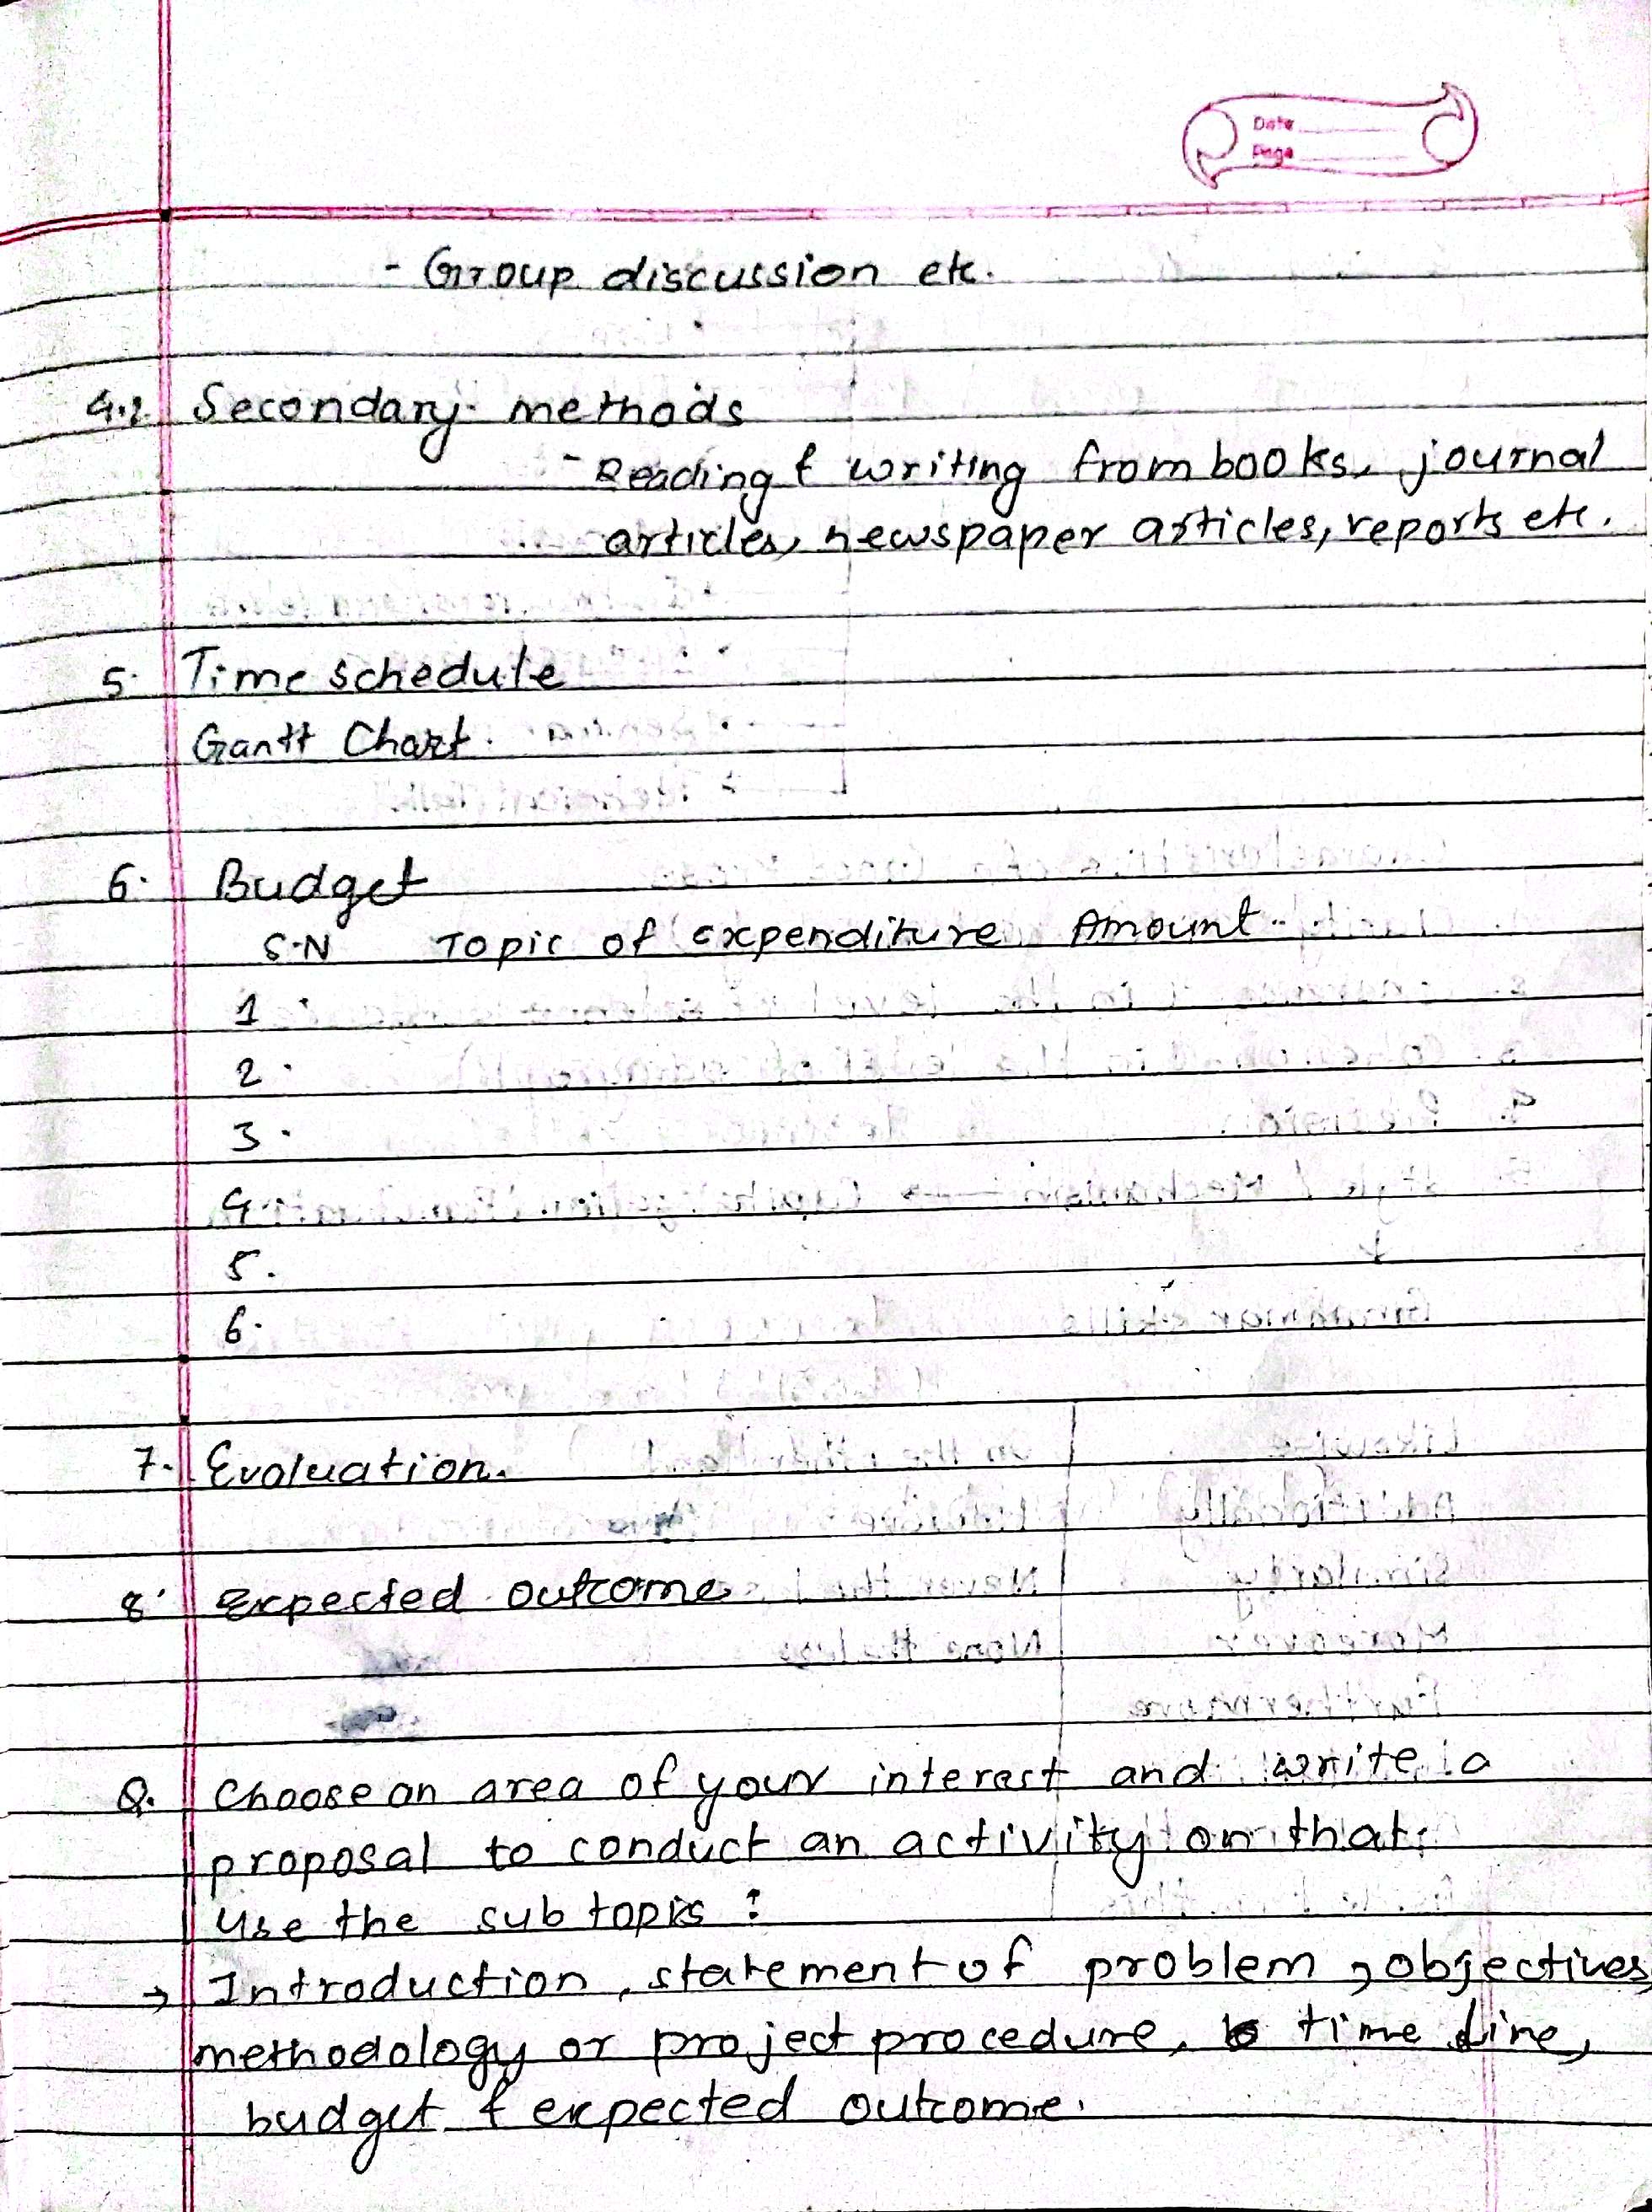 Date
Page
- Group discussion etc.
4.2 Secondary methods
- Reading & writing from books, journal
articles, newspaper articles, reports etc.
5. Time schedule
Gantt Chart.
6. Budget
S.N Topic of expenditure Amount
1.
2.
3.
4.
5.
6.
7. Evaluation.
8. Expected outcome
Q. Choose an area of your interest and write a
proposal to conduct an activity on that.
Use the sub topics :
→ Introduction, statement of problem, objectives,
methodology or project procedure, time line,
budget & expected outcome.